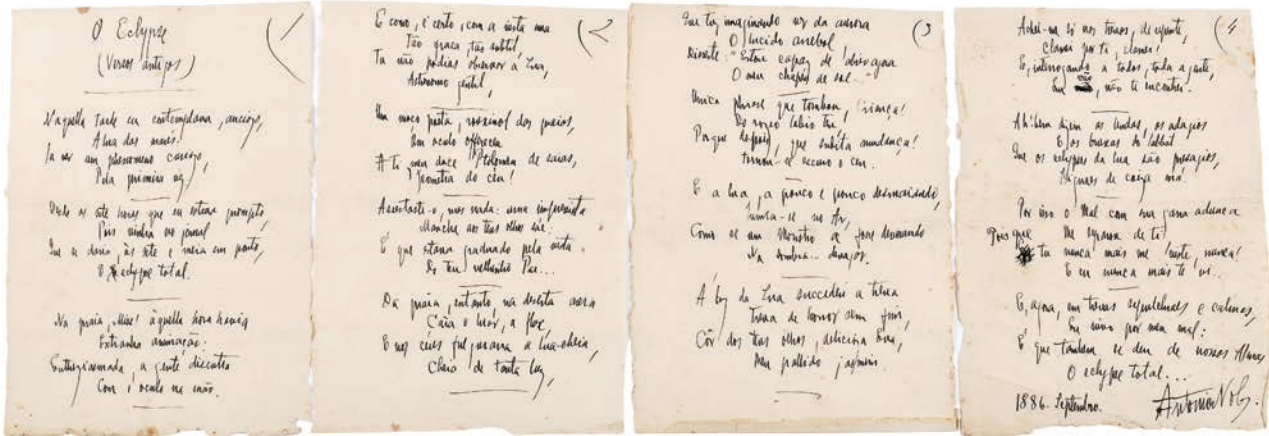 O Eclypse
(Versos antigos)
(1
Naquella tarde eu contemplava, ancioso,
A lua dos mares!
Ia ver um phenomeno curioso,
Pela primeira vez,
Desde as sete horas que eu estava prompto,
Pois vinha no jornal
Que se daria, às sete e meia em ponto,
O eclypse total.
Na praia, àquella hora havia
Extranha animação:
Enthusiasmada, a gente discutia
Com o oculo na mão.
(2
E como, é certo, com a vista nua
Tão fraca, tão subtil,
Tu não podias observar a Lua,
Astronomo gentil,
Um moço poeta, rouxinol dos
Um oculo offerecera
A ti meu doce Ptolomeu de saias,
Geometra do ceu!
Assestaste-o, mas nada: uma imprevista
Mancha aos teus olhos sáe:
É que estava graduado pela vista
Do teu velhinho Pae...
Da praia, entanto, na deserta areia
Caía o luar, a flux,
E nos ceus fulgurava a lua-cheia,
Cheia de tanta luz,
(3
Que tu, imaginando ver da aurora
O lucido arrebol,
Disseste: "Estou capaz de abrir agora
O meu chapeu de sol..."
Unica phrase que tombou, criança!
Do labio teu,
Porque depois, que subita mudança!
Tornou-se escuro o ceu.
E a lua, a pouco e pouco desmaiando,
Sumia-se no Ar,
Como se um Monstro a fosse devorando
Na sombra... devagar.
Á luz da Lua succedeu a treva
Treva de horror sem fim,
Côr dos teus olhos, deliciosa Eva,
Meu pallido jasmim.
(4
Achei-me só nas trevas, de repente,
Clamei por ti, clamei!
E, interrogando a todos, toda a gente,
Em vão, não te encontrei.
Ah! bem dizem as lendas, os adagios
E as bruxas do
Que os eclypses da lua são presagios,
Signaes de coisa má.
Por isso o Mal com sua garra adunca
Me separou de ti:
Pois que tu nunca mais me viste, nunca!
E eu nunca mais te vi...
E, agora, em trevas sepulchraes e calmas,
Eu vivo por meu mal:
É que tambem se deu de nossas Almas
O eclypse total...
1886. Septembro.
Antonio Nobre